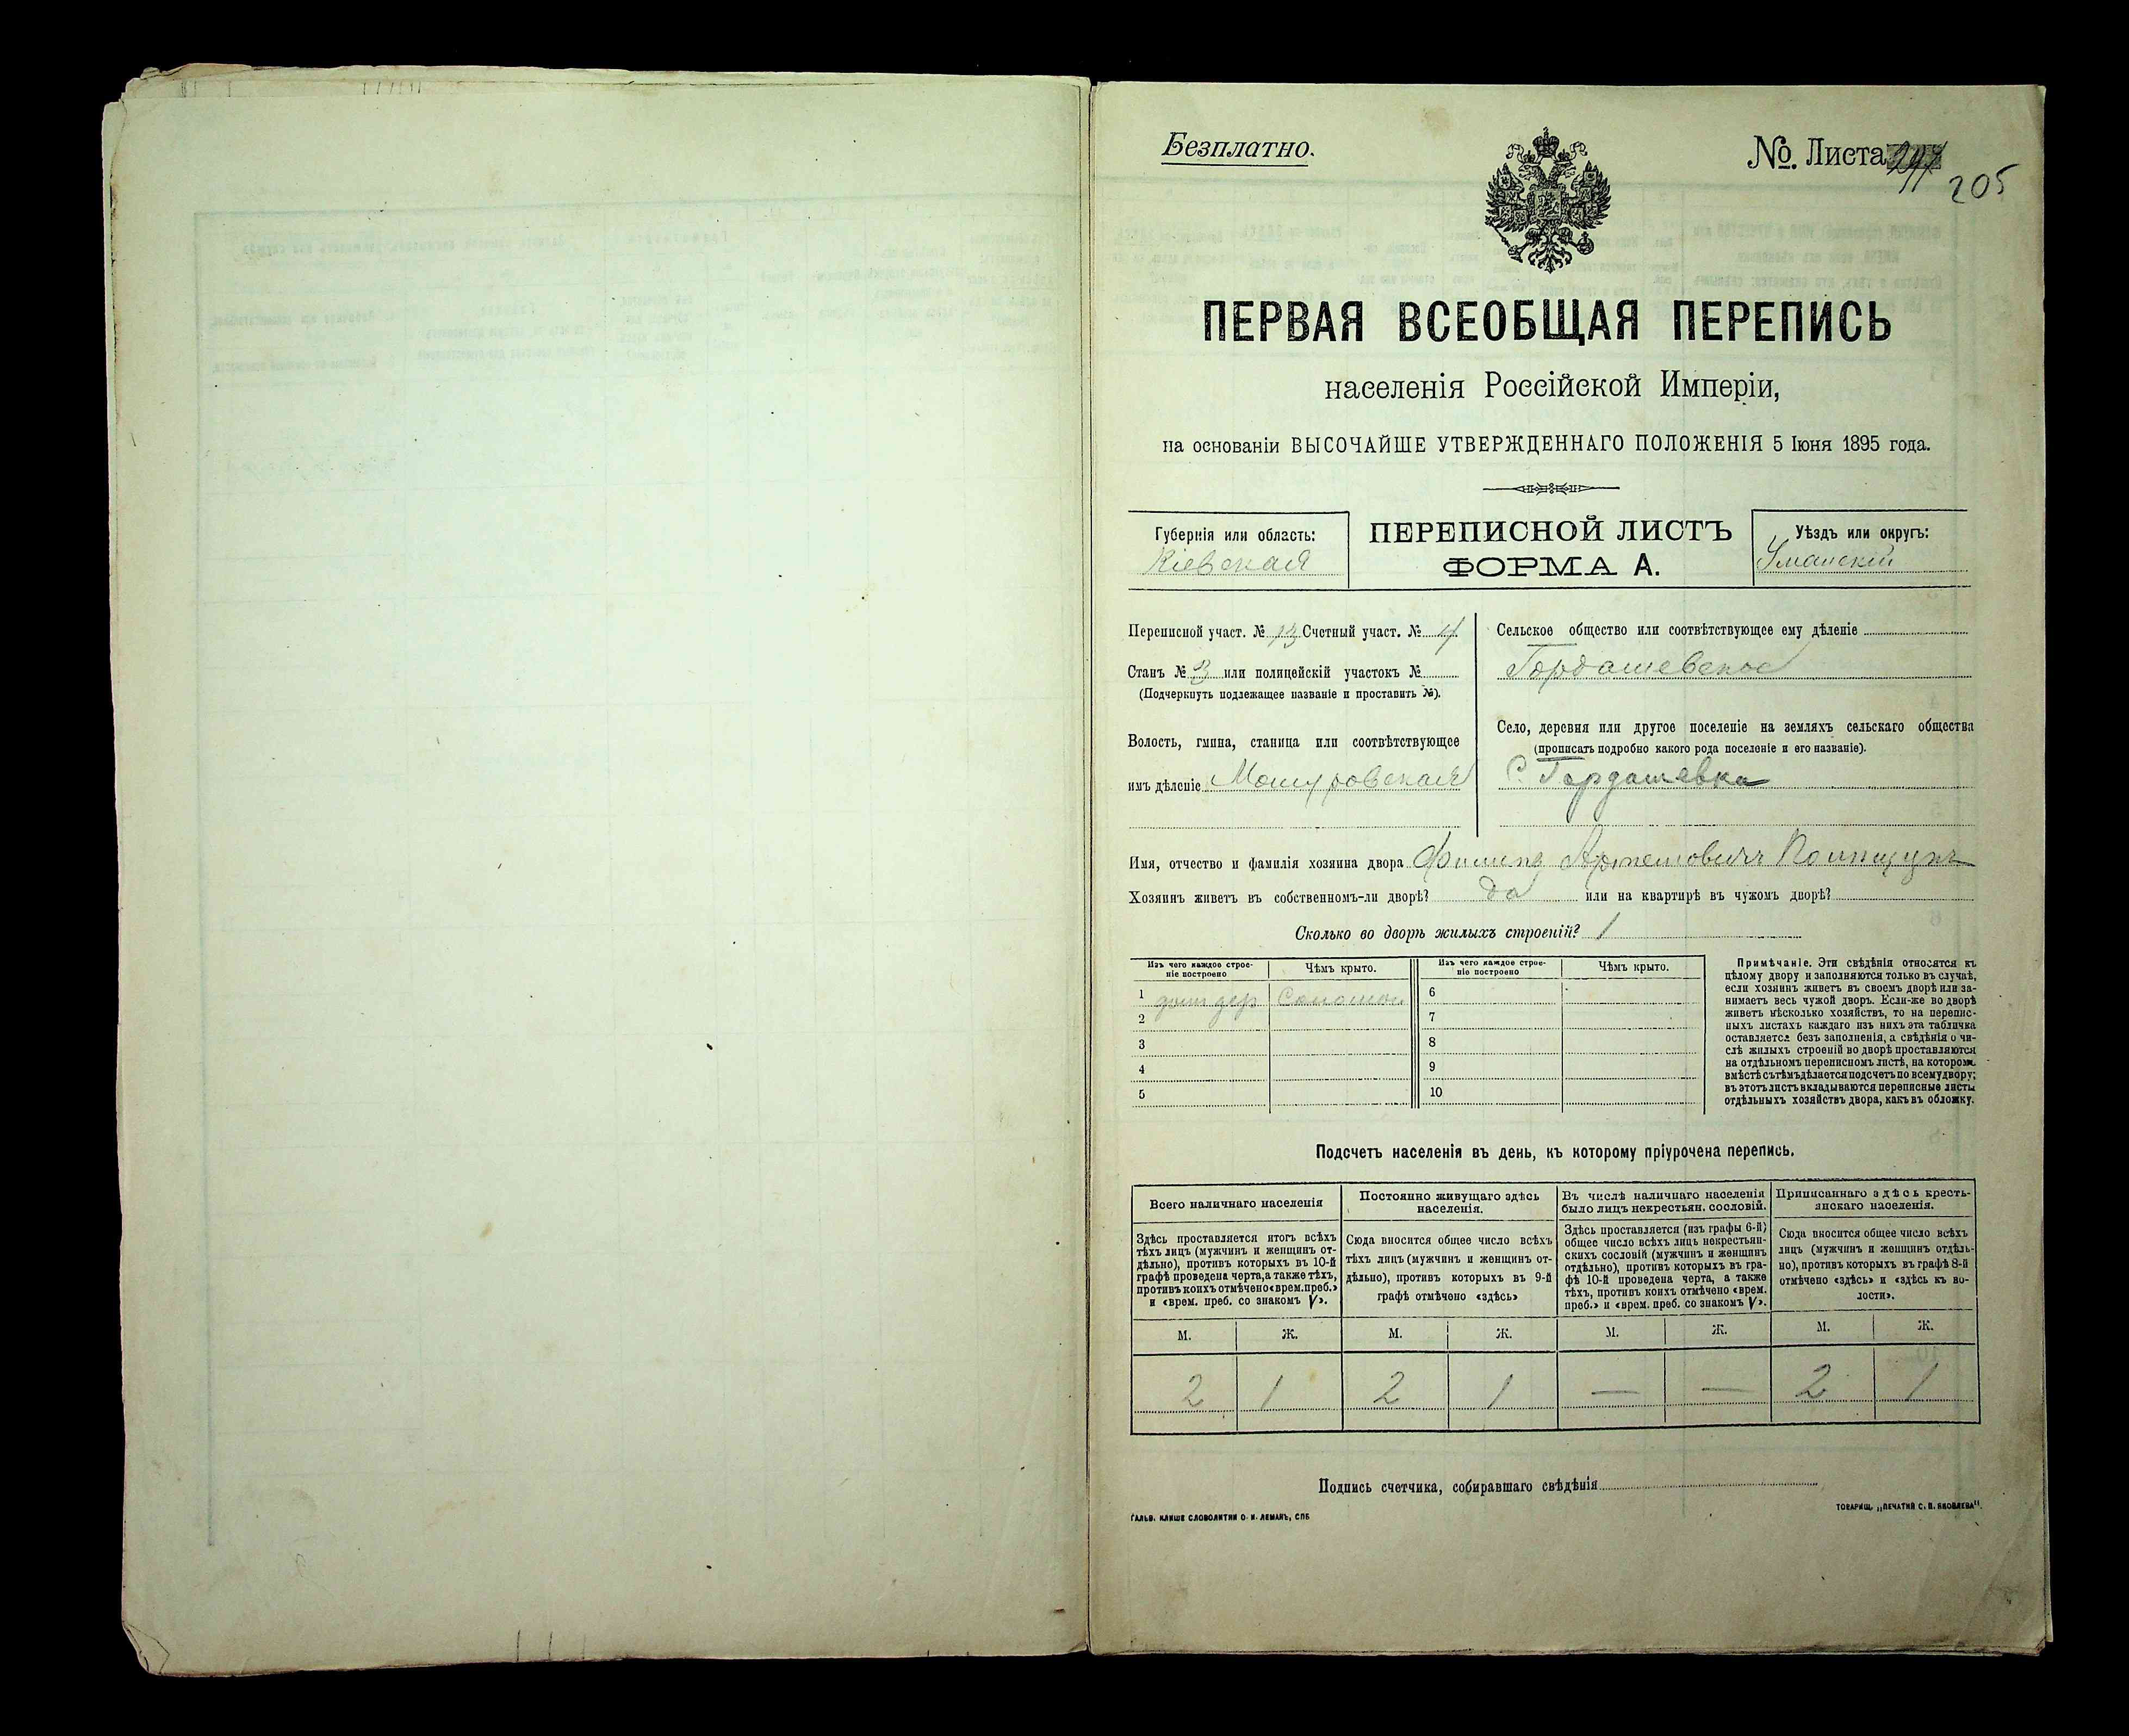 Безплатно.
№. Листа
205
ПЕРВАЯ ВСЕОБЩАЯ ПЕРЕПИСЬ
населенія Россійской Имперіи,
на основаніи ВЫСОЧАЙШЕ УТВЕРЖДЕННАГО ПОЛОЖЕНІЯ 5 Іюня 1895 года.
Губернія или область:
Кіевская
ПЕРЕПИСНОЙ ЛИСТЪ
ФОРМА А.
Уѣздъ или округъ:
Уманскій
Переписной участ. № 13 Счетный участ. № 4
Станъ № 3 или полицейскій участокъ №
(Подчеркнуть подлежащее названіе и проставить №).
Волость, гмина, станица или соотвѣтствующее
имъ дѣленіе Машуровская
Сельское общество или соотвѣтствующее ему дѣленіе
Гордашевское
Село, деревня или другое поселеніе на земляхъ сельскаго общества
(прописать подробно какого рода поселеніе и его названіе).
С. Гордашевка
Имя, отчество и фамилія хозяина двора Филипъ Артемовичъ
Хозяинъ живетъ въ собственномъ-ли дворѣ? да или на квартирѣ въ чужомъ дворѣ?
Сколько во дворѣ жилыхъ строеній? 1
Изъ чего каждое строе-
ніе построено
Чѣмъ крыто.
1 дер Соломой
2
3
4
5
Изъ чего каждое строе-
ніе построено
Чѣмъ крыто.
6
7
8
9
10
Примѣчаніе. Эти свѣдѣнія относятся къ
цѣлому двору и заполняются только въ случаѣ,
если хозяинъ живетъ въ своемъ дворѣ или за-
нимаетъ весь чужой дворъ. Если-же во дворѣ
живетъ нѣсколько хозяйствъ, то на перепис-
ныхъ листахъ каждаго изъ нихъ эта табличка
оставляется безъ заполненія, а свѣдѣнія о чи-
слѣ жилыхъ строеній во дворѣ проставляются
на отдѣльномъ переписномъ листѣ, на которомъ
вмѣстѣ съ тѣмъ дѣлается подсчетъ по всему двору;
въ этотъ листъ вкладываются переписные листы
отдѣльныхъ хозяйствъ двора, какъ въ обложку.
Подсчетъ населенія въ день, къ которому пріурочена перепись.
Всего наличнаго населенія
Здѣсь проставляется итогъ всѣхъ
тѣхъ лицъ (мужчинъ и женщинъ от-
дѣльно), противъ которыхъ въ 10-й
графѣ проведена черта, а также тѣхъ,
противъ коихъ отмѣчено «врем. преб.»
и «врем. преб. со знакомъ V».
Постоянно живущаго здѣсь
населенія.
Сюда вносится общее число всѣхъ
тѣхъ лицъ (мужчинъ и женщинъ от-
дѣльно), противъ которыхъ въ 9-й
графѣ отмѣчено «здѣсь»
Въ числѣ наличнаго населенія
было лицъ некрестьян. сословій.
Здѣсь проставляется (изъ графы 6-й)
общее число всѣхъ лицъ некрестьян-
скихъ сословій (мужчинъ и женщинъ
отдѣльно), противъ которыхъ въ гра-
фѣ 10-й проведена черта, а также
тѣхъ, противъ коихъ отмѣчено «врем.
преб.» и «врем. преб. со знакомъ V».
Приписаннаго здѣсь кресть-
янскаго населенія.
Сюда вносится общее число всѣхъ
лицъ (мужчинъ и женщинъ отдѣль-
но), противъ которыхъ въ графѣ 8-й
отмѣчено «здѣсь» и «здѣсь къ во-
лости».
М. Ж. М. Ж. М. Ж. М. Ж.
2 1 2 1 — — 2 1
Подпись счетчика, собиравшаго свѣдѣнія
ГАЛЬВ. КЛИШЕ СЛОВОЛИТНИ О. И. ЛЕМАНЪ, СПБ
ТОВАРИЩ. „ПЕЧАТНЯ С. П. ЯКОВЛЕВА".